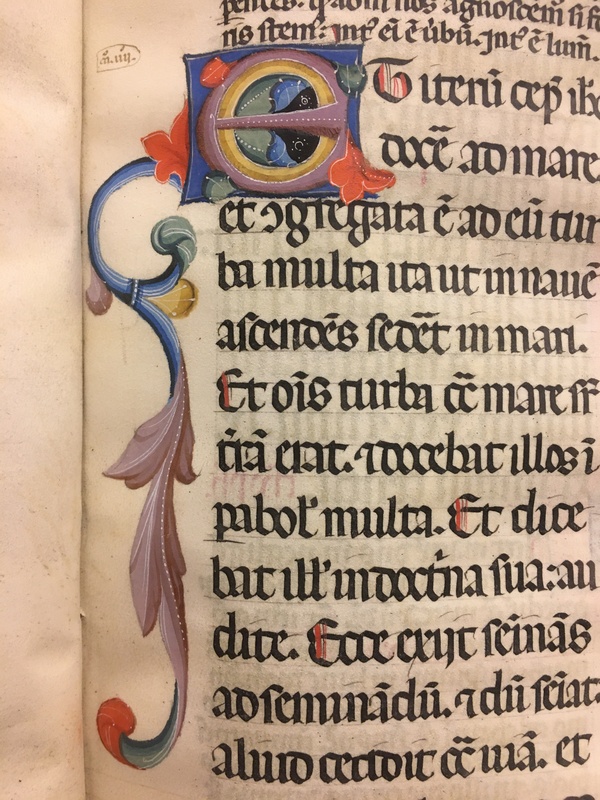 m. iiij.
nis stem: int̄ ei ē ubū. Int̄ ē lum̄.
Et iterū cep̄ ih̄c
docē ad mare
et ꝯgregata ē ad eū tur
ba multa ita ut in nauē
ascendēs sedēt in mari.
Et oīs turba cc̄ mare sr̄
t̄rā erat. ⁊ docebat illos ī
pabol' multa. Et dice
bat ill' in doct̄na sua: au
dite. Ecce exijt seīnās
ad seminādū. ⁊ dū seīat
aliud cecidit cc̄ uiā. et